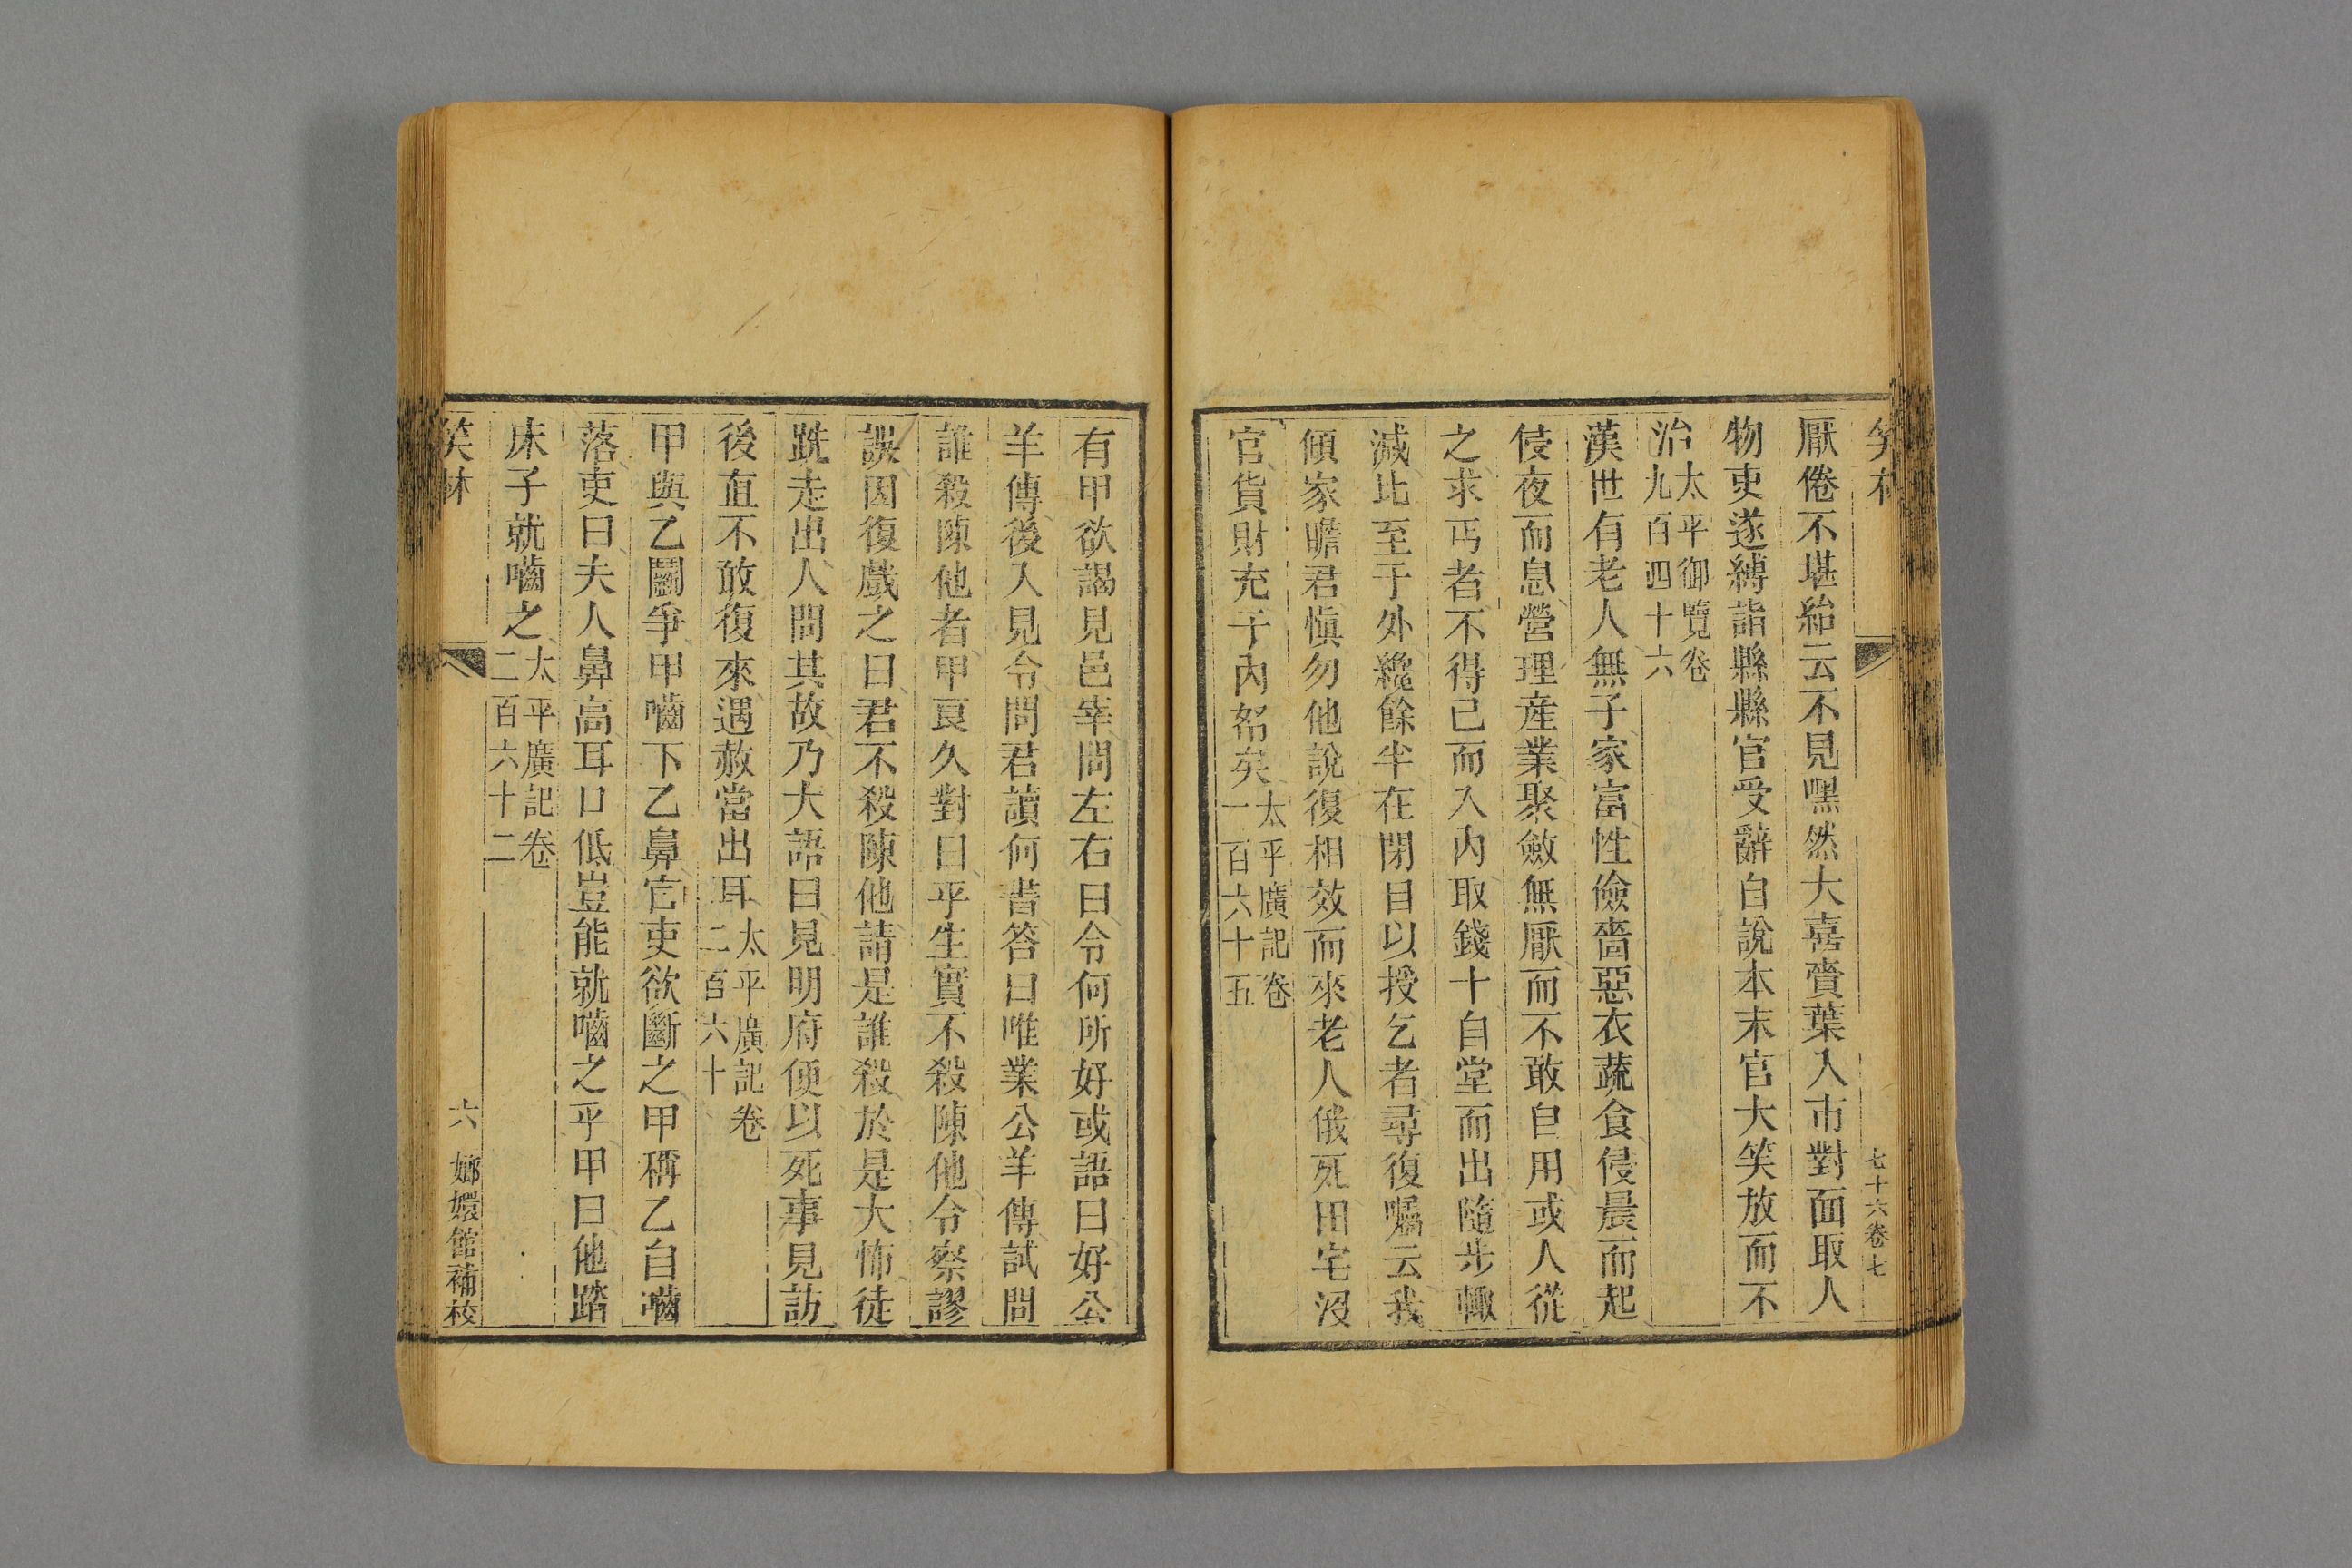 笑林
七十六卷七
厭倦不堪紿云不見嘿然大喜賫葉入市對面取人
物吏遂縛詣縣縣官受辭自說本末官大笑放而不
治太平御覽卷
九百四十六
漢世有老人無子家富性儉嗇惡衣蔬食侵晨而起
侵夜而息營理産業聚斂無厭而不敢自用或人從
之求丐者不得已而入內取錢十自堂而出隨步輒
減比至于外纔餘半在閉目以授乞者尋復囑云我
傾家贍君愼勿他說復相效而來老人俄死田宅沒
官貨財充于內帑矣太平廣記卷
一百六十五
有甲欲謁見邑宰問左右曰令何所好或語曰好公
羊傳後入見令問君讀何書答曰唯業公羊傳試問
誰殺陳他者甲良久對曰平生實不殺陳他令察謬
誤因復戲之曰君不殺陳他請是誰殺於是大怖徒
跣走出人問其故乃大語曰見明府便以死事見訪
後直不敢復來遇赦當出耳太平廣記卷
二百六十
甲與乙鬭爭甲嚙下乙鼻官吏欲斷之甲稱乙自嚙
落吏曰夫人鼻高耳口低豈能就嚙之乎甲曰他踏
床子就嚙之太平廣記卷
二百六十二
笑林
六
嫏嬛館補校